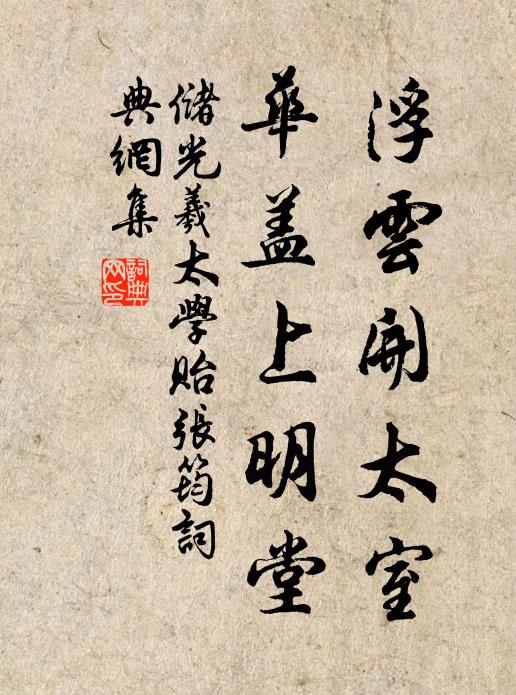 浮雲開太室
華盖上明堂
儲光羲太學貽張筠詞
典網集
詞典网印